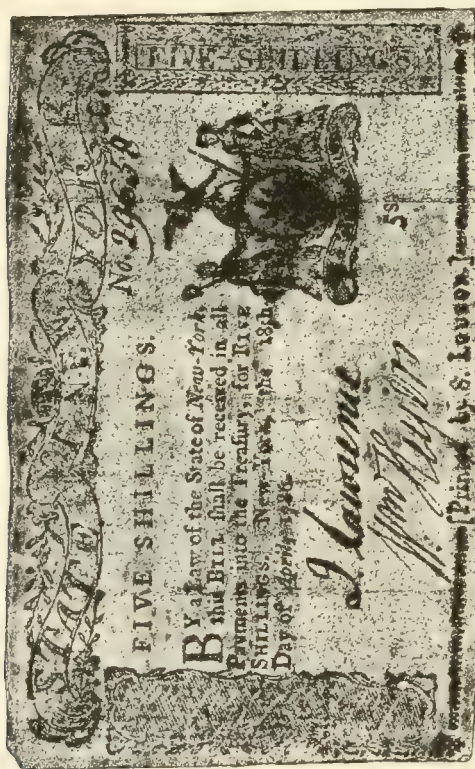 STATE OF NEW YORK
FIVE SHILLINGS
FIVE SHILLINGS. No.
BY a Law of the State of New-York,
this BILL ſhall be received in all
Payments into the Treaſury, for FIVE
SHILLINGS. New-York, the 18th
Day of April,
5s
[Printed by S. Loudon.]